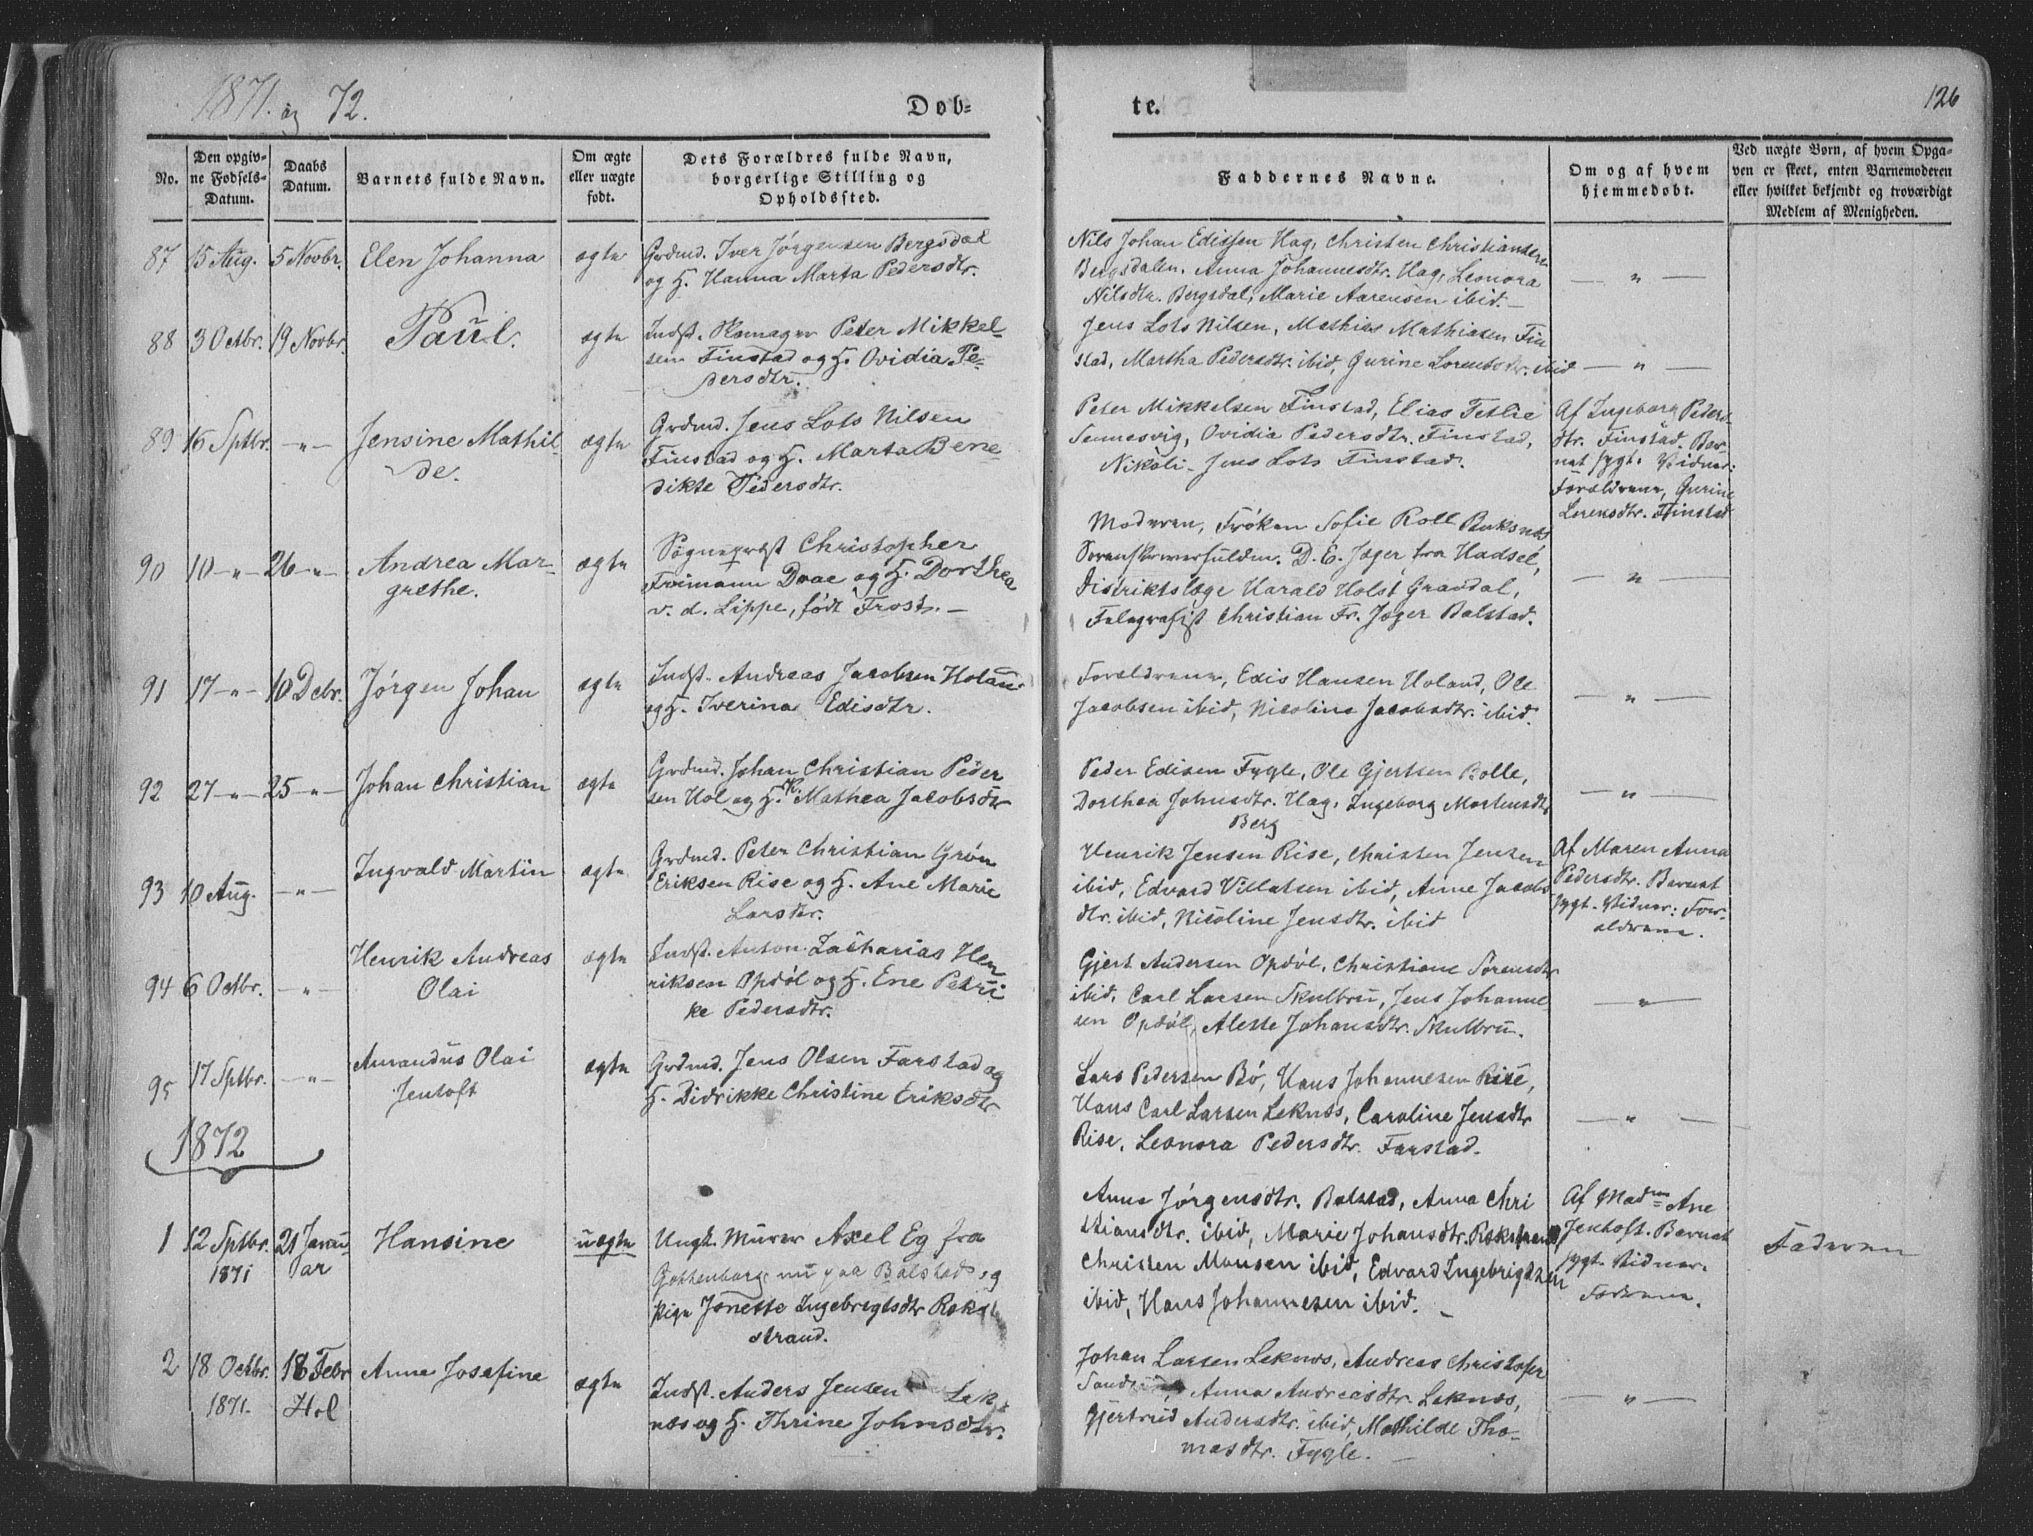 1871. og 72.
Døb-
te.
126
No.
Den opgiv-
ne Fødsels-
Datum.
Daabs
Datum.
Barnets fulde Navn.
Om ægte
eller uægte
født.
Dets Forældres fulde Navn,
borgerlige Stilling og
Opholdssted.
Faddernes Navne.
Om og af hvem
hjemmedøbt.
Ved uægte Børn, af hvem Opga-
ven er skeet, enten Barnemoderen
eller hvilket bekjendt og troværdigt
Medlem af Menigheden.
87 15 Aug. 5 Novbr. Elen Johanna ægte
Grdmd. Iver Jørgensen Bergsdal
og H. Hanna Marta Pedersdtr.
Nils Johan Edissen Hag, Christen Christiansen
Bergsdalen. Anna Johannesdtr. Hag, Leonora
Nilsdtr. Bergsdal, Marie Aarensen ibid. —
— " —
88 3 Octbr. 19 Novbr. Paul. ægte
Indst. Peter Mikkel-
sen Finstad og H. Ovidia Pe-
dersdtr.
Jens Lots Nilsen, Mathias Mathiasen Fin
stad, Martha Pedersdtr. ibid, Gurine Lorentsdtr. ibid
— " —
89 16 Sptbr. — " — Jensine Mathil-
de.
ægte
Grdmd. Jens Lots Nilsen
Finstad og H. Marta Bene-
dikte Pedersdtr.
Peter Mikkelsen Finstad, Elias Tetlie
Sennesvig, Ovidia Pedersdtr. Finstad,
Nikoli- Jens Lots Finstad.
Af Ingeborg Peders
dtr. Finstad. Bar-
net sygt. Vidner:
Forældrene, Gurine
Lorensdtr. Finstad
90 10 — " — 26 — " — Andrea Mar-
grethe.
ægte
Sognepræst Christopher
Frimann Daae og H. Dorthea
v. d. Lippe, født Frost. —
Moderen, Frøken Sofie Roll Buksnæs
Sorenskriverfuldm. D. E. Jæger fra Hadsel,
Distriktslæge Harald Holst Gravdal,
Telegrafist Christian Fr. Jæger Balstad.
— " —
91 17 — " — 10 Debr. Jørgen Johan ægte
Indst. Andreas Jacobsen Holand
og H. Iverina Edisdtr.
Forældrene, Edis Hansen Holand, Ole
Jacobsen ibid, Nicoline Jacobsdtr. ibid.
— " —
92 27 — " — 25 — " — Johan Christian ægte
Grdmd. Johan Christian Peder
sen Hol og H. Mathea Jacobsdtr
Peder Edisen Fygle, Ole Gjertsen Bolle,
Dorthea Johnsdtr. Hag, Ingeborg Mortensdtr
Berg
— " —
93 10 Aug. — " — Ingvald Martin ægte
Grdmd. Peter Christian Grøn
Eriksen Rise og H. Ane Marie
Larsdtr.
Henrik Jensen Rise, Christen Jensen
ibid, Edvard Villatsen ibid, Anne Jacobs
dtr. ibid, Nicoline Jensdtr. ibid
Af Maren Anna
Pedersdtr. Barnet
sygt. Vidner: For-
ældrene.
94 6 Octbr. — " — Henrik Andreas
Olai
ægte
Indst. Anton Zacharias Hen
riksen Opdøl og H. Ene Petri
ke Pedersdtr.
Gjert Andersen Opdøl, Christiane Sørensdtr
ibid, Carl Larsen Skulbru, Jens Johanne-
sen Opdøl, Alette Johansdtr. Skulbru.
— " —
95 17 Sptbr. — " — Amandus Olai
Jentoft
ægte
Grdmd. Jens Olsen Farstad og
H. Didrikke Christine Eriksdtr
Lars Pedersen Bø, Hans Johannesen Rise,
Hans Carl Larsen Leknes, Caroline Jensdtr
Rise, Leonora Pedersdtr. Farstad.
— " —
1872
1 12 Sptbr.
1871
21 Janu
ar
Hansine uægte
Ungk. Murer Axel Eg fra
Gottenborg nu paa Balstad og
Pige Jonette Ingebrigtsdtr Rek
strand.
Anne Jørgensdtr. Balstad, Anna Chri
stiansdtr. ibid, Marie Johansdtr.
Christen Monsen ibid, Edvard Ingebrigtsen
ibid, Hans Johannesen ibid. —
Af Mad. Ane
Jentoft. Barnet
sygt. Vidner.
Faderen
2 18 Octbr.
1871.
18 Febr
Hol
Anne Josefine ægte
Indst. Anders Jensen Lek-
næs og H. Thrine Johnsdtr.
Johan Larsen Leknæs, Andreas Christofer
Anna Andreasdtr. Leknæs,
Gjertrud Andersdtr. ibid, Mathilde Tho-
masdtr. Fygle. —
— " —